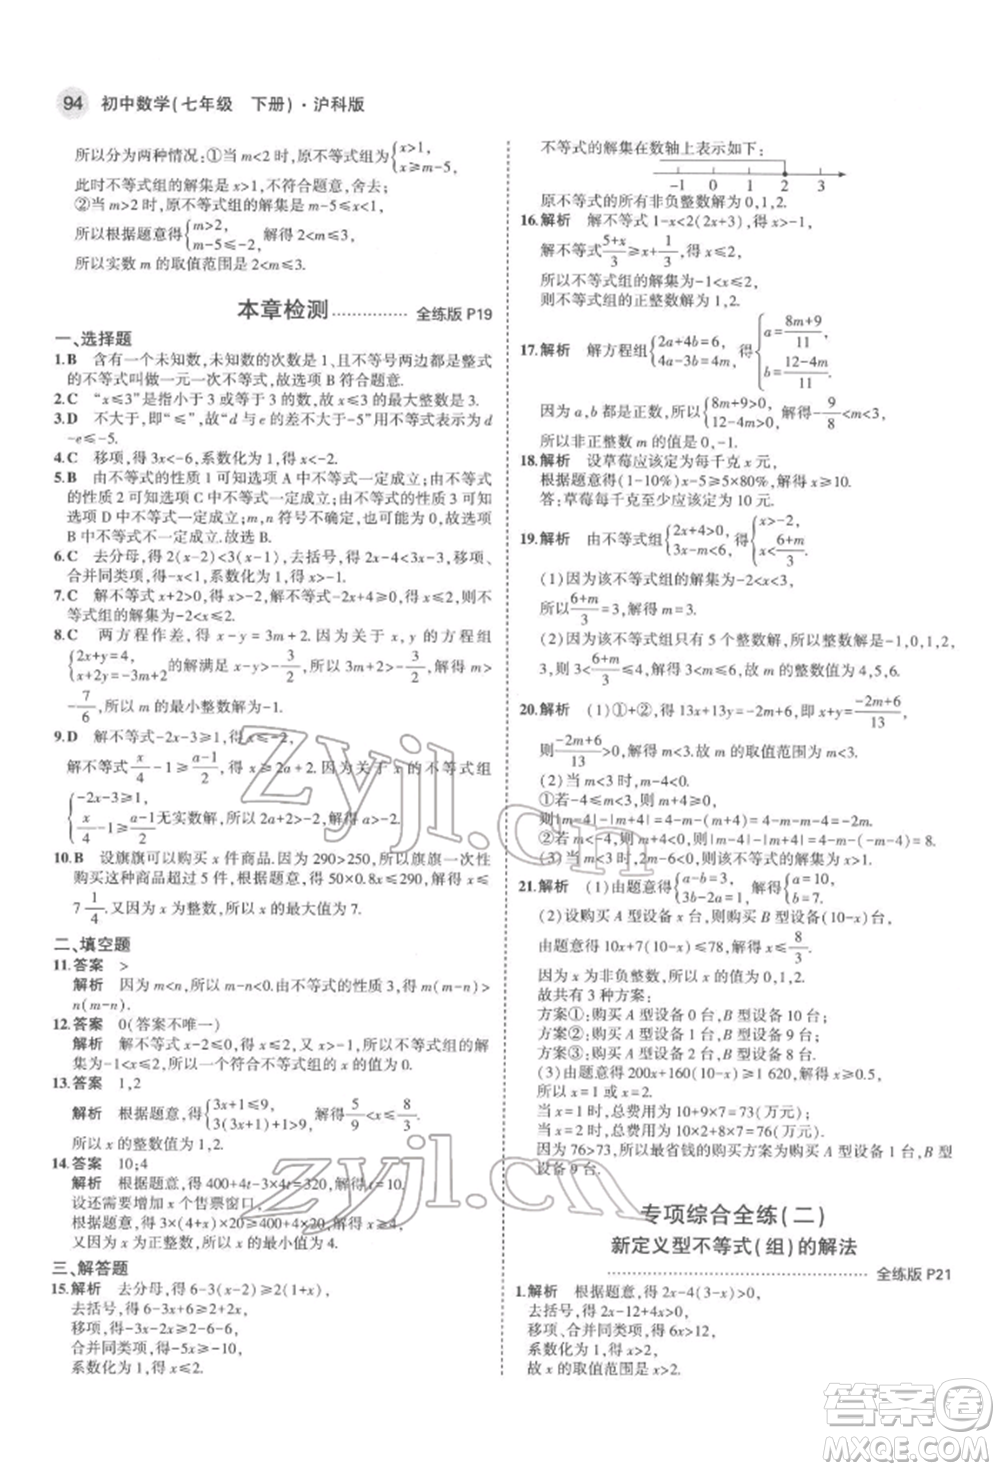 94 初中数学(七年级 下册)·沪科版
所以分为两种情况:①当 m<2 时,原不等式组为{x>1, x≥m-5,
此时不等式组的解集是 x>1,不符合题意,舍去;
②当 m>2 时,原不等式组的解集是 m-5≤x<1,
所以根据题意得{m>2, m-5≤-2, 解得 2<m≤3.
所以实数 m 的取值范围是 2<m≤3.
本章检测 全练版 P19
一、选择题
1.B 含有一个未知数,未知数的次数是 1,且不等号两边都是整式
的不等式叫做一元一次不等式,故选项 B 符合题意.
2.C “x≤3”是指小于 3 或等于 3 的数,故 x 的最大整数是 3.
3.D 不大于,即“≤”,故“d 与 e 的差不大于-5”用不等式表示为d
-e≤-5.
4.C 移项,得 3x<-6,系数化为 1,得 x<-2.
5.B 由不等式的性质 1 可知选项 A 中不等式一定成立;由不等式
的性质 2 可知选项 C 中不等式一定成立;由不等式的性质 3 可知
选项 D 中不等式一定成立;m,n 符号不确定,也可以为 0,故选项
B 中不等式不一定成立.故选 B.
6.C 去分母,得 2(x-2)<3(x-1),去括号,得 2x-4<3x-3,移项、
合并同类项,得-x<1,系数化为 1,得 x>-1.
7.C 解不等式x+2>0,得 x>-2,解不等式-2x+4≥0,得 x≤2,所以
不等式组的解集为-2<x≤2.
8.C 两方程作差,得 x-y=3m+2.因为关于 x,y 的方程组
{2x+y=4, x+2y=-3m+2的解满足 x-y>-3/2,所以 3m+2>-3/2,解得 m>
-7/6,所以 m 的最小整数解为-1.
9.D 解不等式-2x-3≥1,得 x≤-2,
解不等式x/4-1≥(a-1)/2,得 x≥2a+2.因为关于 x 的不等式组
{-2x-3≥1, x/4-1≥(a-1)/2无实数解,所以 2a+2>-2,解得 a>-2.
10.B 设旗旗可以购买 x 件商品.因为 290>250,所以旗旗一次性
购买这种商品超过 5 件,根据题意,得 50×0.8x≤290,解得 x≤
7 1/4.又因为 x 为整数,所以 x 的最大值为 7.
二、填空题
11.答案 >
解析 因为 m<n,所以 m-n<0,根据不等式的性质3,得 m(m-n)>
n(m-n).
12.答案 0(答案不唯一)
解析 解不等式 x-2≤0,得 x≤2,所以不等式组的解
集为-1<x≤2,所以一个符合不等式组的 x 的值为 0.
13.答案 1,2
解析 根据题意,得{3x+1≤9, 3(3x+1)+1>9, 解得 5/9<x≤8/3.
所以 x 的整数值为 1,2.
14.答案 10;4
解析 根据题意,得 240+4×3x=4×5x,解得 x=10.
设还需要增加 x 个售票窗口,
根据题意,得 3×(4+x)×10≥240,解得 x≥4.
三、解答题
15.解析 去分母,得 6-3(x-2)≥2(x+1),
去括号,得 6-3x+6≥2x+2,
移项,得-3x-2x≥2-6-6,
合并同类项,得-5x≥-10,
系数化为 1,得 x≤2.
不等式的解集在数轴上表示如下:
-1 0 1 2 3
原不等式的所有非负整数解为 0,1,2.
16.解析 解不等式 1-x<2(2x+3),得 x>-1,
解不等式(5+x)/3≥x+1/3,得 x≤2,
所以不等式组的解集为-1<x≤2,
则不等式组的正整数解为 1,2.
17.解析 解方程组{2a+4b=6, 4a-3b=4m, 得{a=(8m+9)/11, b=(12-4m)/11.
因为 a,b 都是正数,所以{8m+9>0, 12-4m>0, 解得-9/8<m<3,
所以非正整数 m 的值是 0,-1.
18.解析 设草莓应该定为每千克 x 元,
根据题意得(1-10%)x-5≥5×80%,解得 x≥10.
答:草莓每千克至少应该定为 10 元.
19.解析 由不等式组{2x+4>0, 3x-m<6, 得{x>-2, x<(6+m)/3.
(1)因为该不等式组的解集为-2<x<3,
所以(6+m)/3=3,解得 m=3.
(2)因为该不等式组只有 5 个整数解,所以整数解为-1,0,1,2,
3,则 3<(6+m)/3≤4,解得 3<m≤6.故 m 的整数值为 4,5,6.
20.解析 (1)①+②,得 13x+13y=-2m+6,即x+y=(-2m+6)/13,
则(-2m+6)/13>0,解得 m<3.故 m 的取值范围为 m<3.
(2)当 m<3 时,m-4<0.
①若-4≤m<3,则 m+4≥0,
则|m-4|-|m+4|=4-m-m-4=-2m.
②若 m<-4,则 m+4<0,则|m-4|-|m+4|=4-m+m+4=8.
21.解析 (1)由题意得{a-b=3, 3b-2a=1, 解得{a=10, b=7.
(2)设购买 A 型设备 x 台,则购买 B 型设备(10-x)台,
由题意得 10x+7(10-x)≤78,解得 x≤8/3.
因为 x 为非负整数,所以 x 的值为 0,1,2.
故共有 3 种方案:
方案①:购买 A 型设备 0 台,B 型设备 10 台;
方案②:购买 A 型设备 1 台,B 型设备 9 台;
方案③:购买 A 型设备 2 台,B 型设备 8 台.
(3)由题意得 200x+160(10-x)≥1 620,解得 x≥0.5.
所以 x 的值为 1 和 2.
当 x=1 时,总费用为 10+9×7=73(万元);
当 x=2 时,总费用为 10×2+8×7=76(万元).
因为 76>73,所以最省钱的购买方案为 A 型设备 1 台,B 型设备
9 台.
专项综合全练(二)
新定义型不等式(组)的解法
全练版 P21
1.解析 根据题意,得 2x-4(3-x)>0,
去括号,得 2x-12+4x>0,
移项、合并同类项,得 6x>12,
系数化为 1,得 x>2.
故 x 的取值范围是 x>2.
zyjl.cn
zyjl.cn
答案圈
MXQE.COM